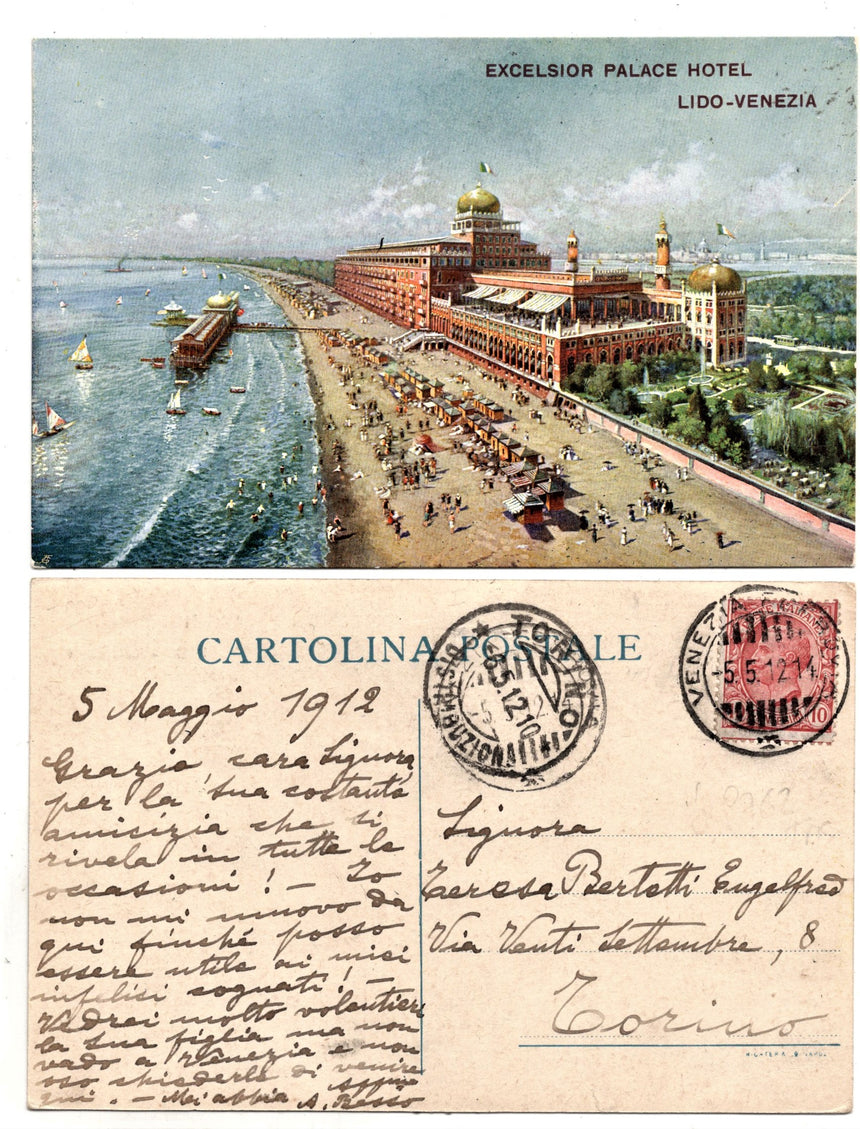 EXCELSIOR PALACE HOTEL
LIDO-VENEZIA
CARTOLINA POSTALE
TORINO
DISTRIBUZIONE
5.12.10
VENEZIA
5.5.12.14
10
5 Maggio 1912
Grazie cara Signora
per la Sua costante
amicizia che si
rivela in tutte le
occasioni! – Io
non mi muovo da
qui finché posso
essere utile ai miei
infelici cognati! –
Vedrei molto volentieri
la Sua figlia ma non
vado a Venezia e non
oso chiederle di venire
qui. – Mi abbia
A. Besso
Signora
Teresa Bertotti Engelfred
Via Venti Settembre, 8
Torino